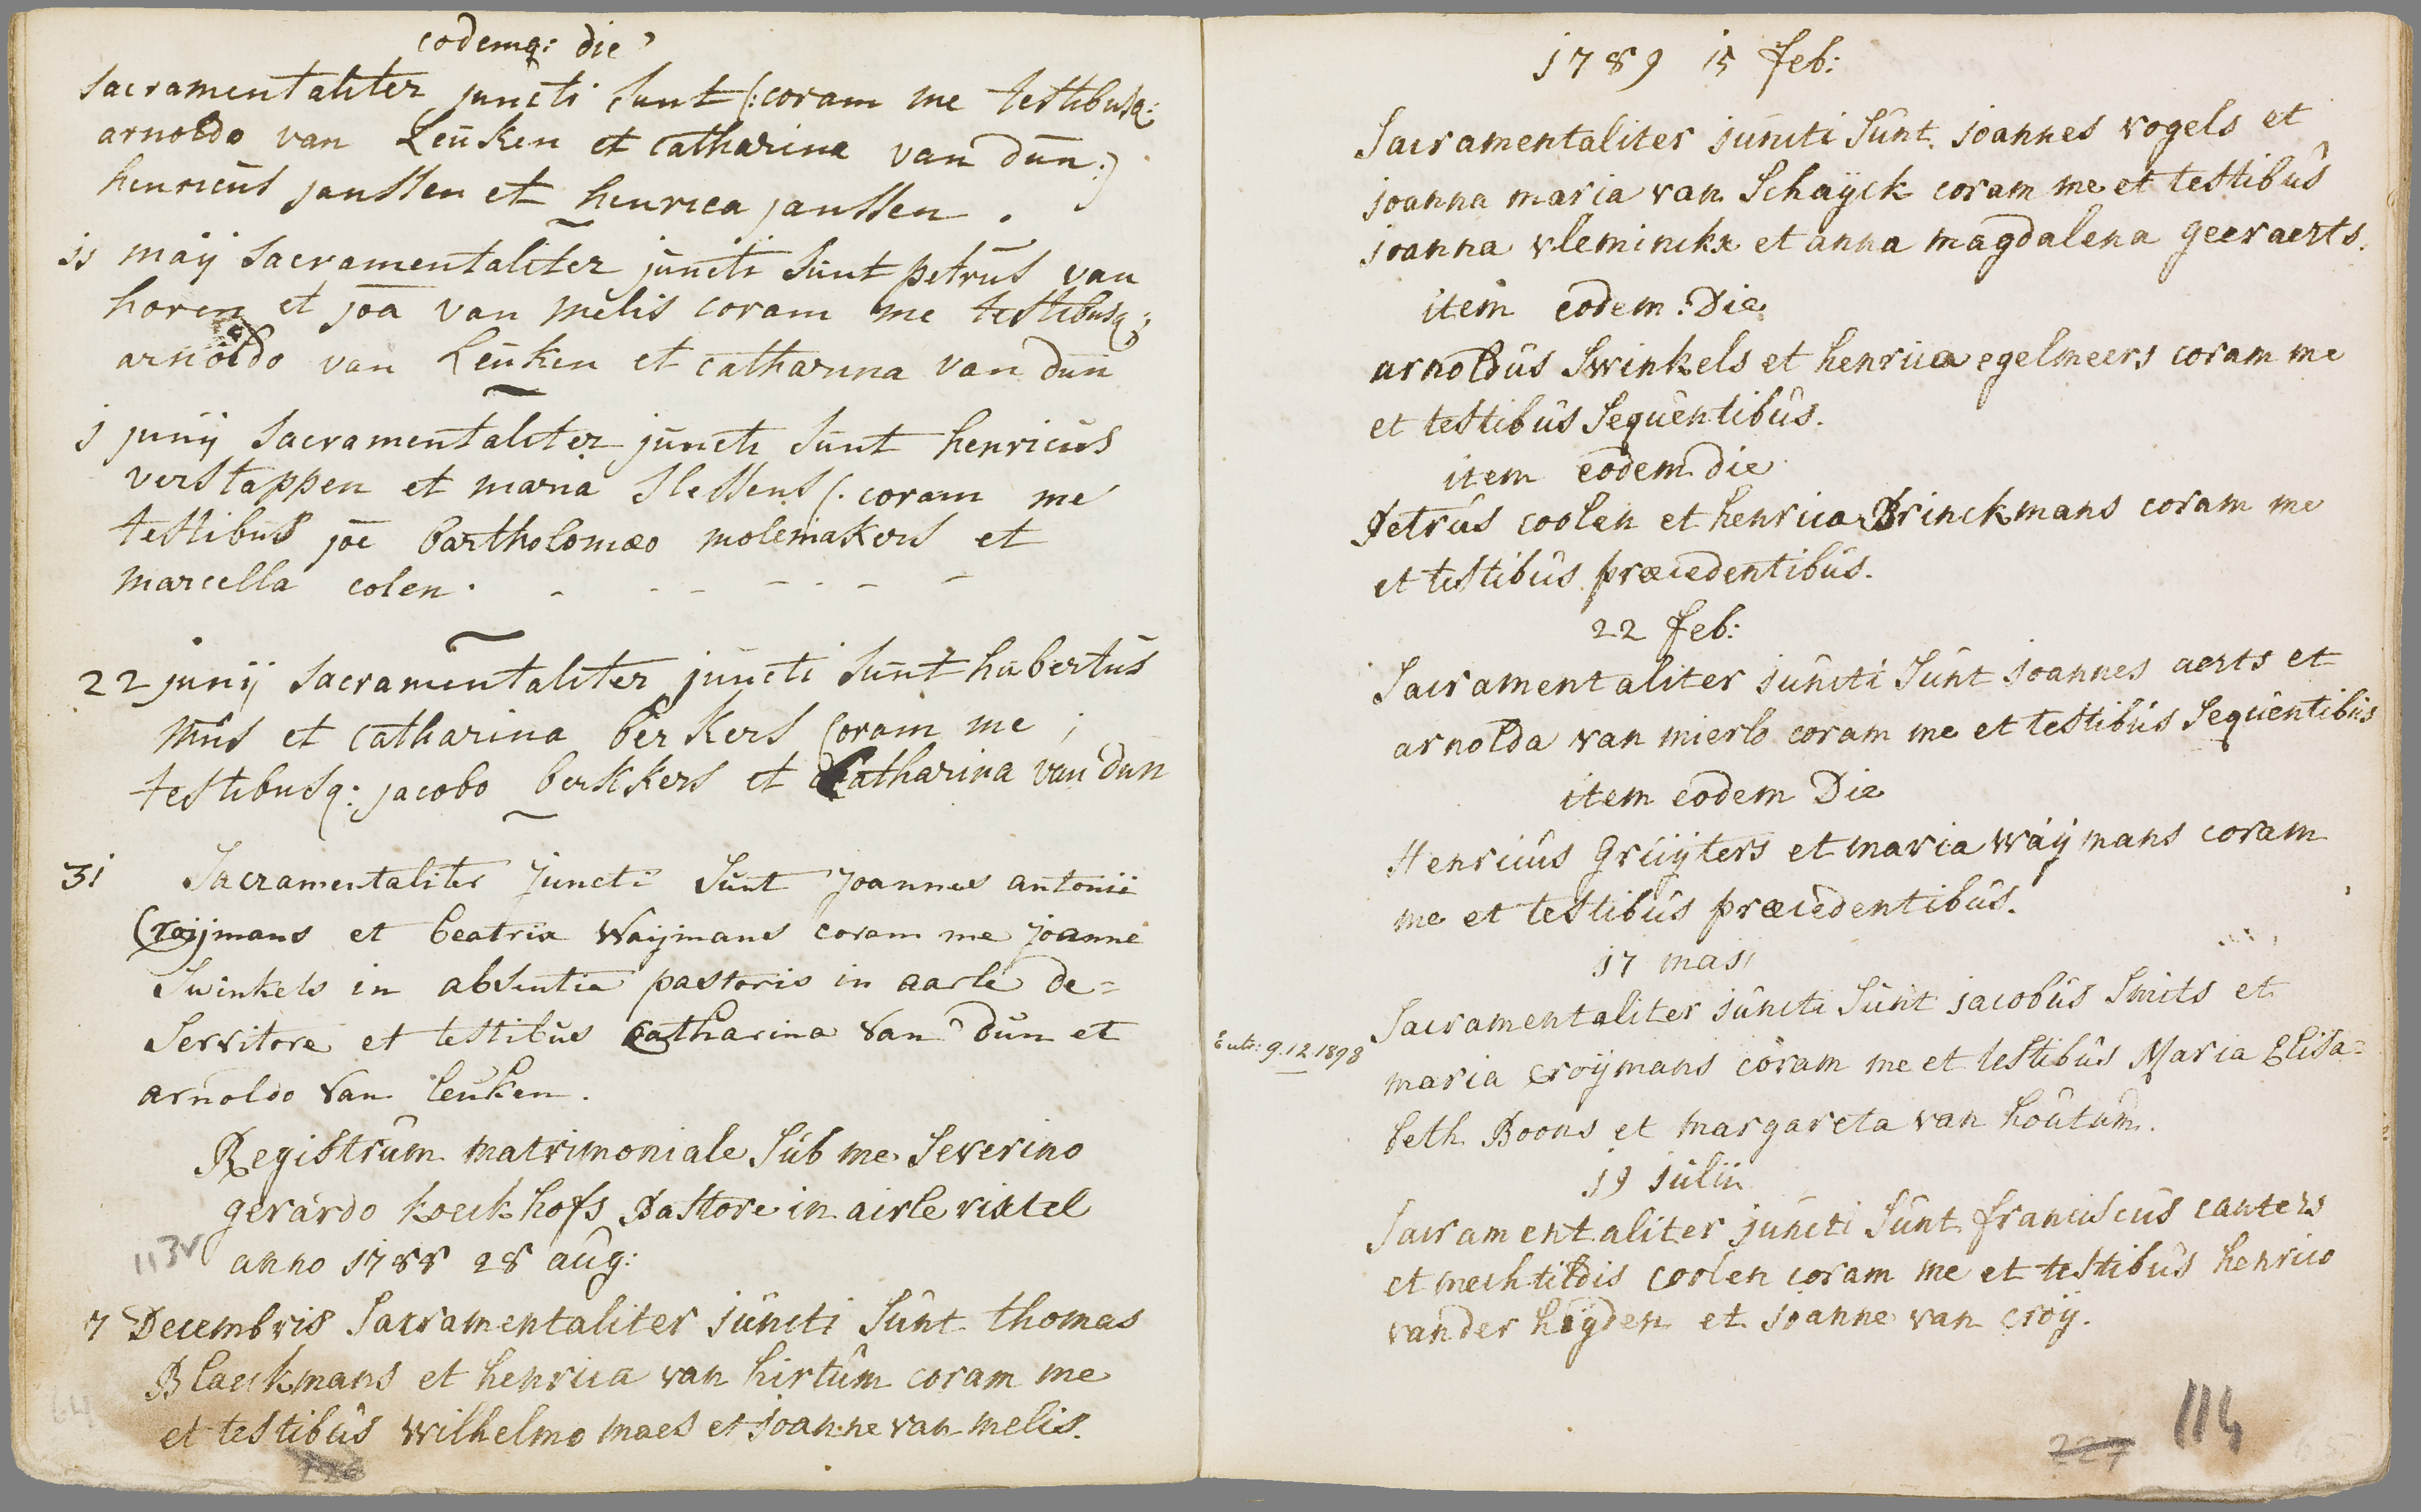 eodemq: die
sacramentaliter juncti sunt (: coram me testibusq:
arnoldo van Leuken et catharina van dun :)
henricus janssen et henrica janssen .
11 maij sacramentaliter juncti sunt petrus van
horen et joa van melis coram me testibusq:
arnoldo van Leuken et catharina van dun
1 junij sacramentaliter juncti sunt henricus
verstappen et maria slessens (. coram me
testibus joe bartholomæo molemakers et
marcella colen .
22 junij sacramentaliter juncti sunt hubertus
mus et catharina berkers coram me ;
testibusq: jacobo berkkers et catharina van dun
31 Sacramentaliter juncti sunt joannes antonii
Croijmans et beatrix Waijmans coram me joanne
Swinkels in absentia pastoris in aarle de=
servitore et testibus catharina van dun et
arnoldo van leuken .
Registrum matrimoniale sub me Severino
gerardo koeckhofs Pastore in airle rixtel
113v anno 1788 28 aug:
7 Decembris sacramentaliter juncti sunt thomas
Blaeckmans et henrica van hirtum coram me
et testibus wilhelmo maes et joanne van melis.
64
226
1789 15 feb:
Sacramentaliter juncti sunt joannes vogels et
joanna maria van Schaijck coram me et testibus
joanna vleminckx et anna magdalena geeraerts.
item eodem Die
arnoldus Swinkels et henrica egelmeers coram me
et testibus sequentibus.
item eodem die
Petrus coolen et henrica Brinckmans coram me
et testibus præcedentibus.
22 feb:
Sacramentaliter juncti sunt joannes aerts et
arnolda van mierlo coram me et testibus sequentibus
item eodem Die
Henricus Gruijters et maria waijmans coram
me et testibus præcedentibus.
17 maji
Sacramentaliter juncti sunt jacobus Smits et
Extr: 9.12.1898
maria croijmans coram me et testibus Maria Elisa=
beth Boons et margareta van houtum.
19 julii
Sacramentaliter juncti sunt franciscus canters
et mechtildis coolen coram me et testibus henrico
vander heijden et joanne van croij.
227 114